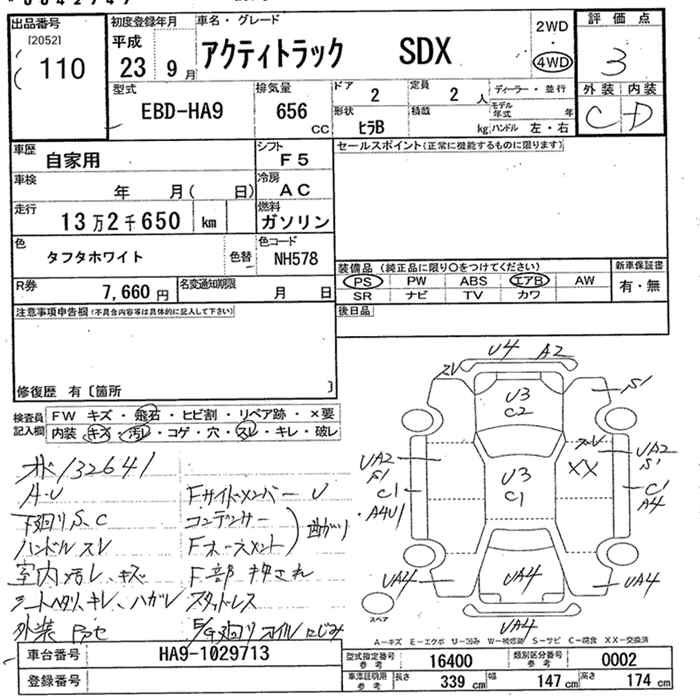 出品番号
[2052]
110
初度登録年月
平成
23 9月
車名・グレード
アクティトラック SDX
2WD
・
4WD
評価点
3
外装 内装
C D
型式
EBD-HA9
排気量
656
CC
ドア
2
定員
2 人
ディーラー・並行
モデル年式 年
形状
ヒラB
積載
kg
ハンドル 左・右
車歴
自家用
シフト
F5
セールスポイント(正常に機能するものに限ります)
車検
年 月( 日)
冷房
AC
走行
13万2千650 km
燃料
ガソリン
色
タフタホワイト
色替
色コード
NH578
装備品 (純正品に限り〇をつけてください)
PS PW ABS エアB AW
SR ナビ TV カワ
新車保証書
有・無
R券
7,660円
名変通知期限
月 日
注意事項申告欄(不具合内容等は具体的に記入して下さい)
後日品
修復歴 有〔箇所 〕
検査員記入欄
FW キズ・飛石・ヒビ割・リペア跡・×要
内装 キズ・汚レ・コゲ・穴・スレ・キレ・破レ
132641
A・U
下回りS、C
ハンドルスレ
室内汚レ、キズ
シートヘタリ、キレ、ハガレ
外装
Fサイドメンバー U
コンデンサー
曲がり
F部押され
スタッドレス
オイルにじみ
U4 A2
U3
C2
S1
UA2
S1
C1
A4U1
XX
UA2
S1
C1
A4
U3
C1
UA4
UA4
UA4
UA4
スペア
A-キズ E-エクボ U-凹み W-補修跡 S-サビ C-腐食 XX-交換済
車台番号
HA9-1029713
登録番号
型式指定番号
参考
16400
類別区分番号
参考
0002
車検証明用
参考
長さ
339 cm
幅
147 cm
高さ
174 cm